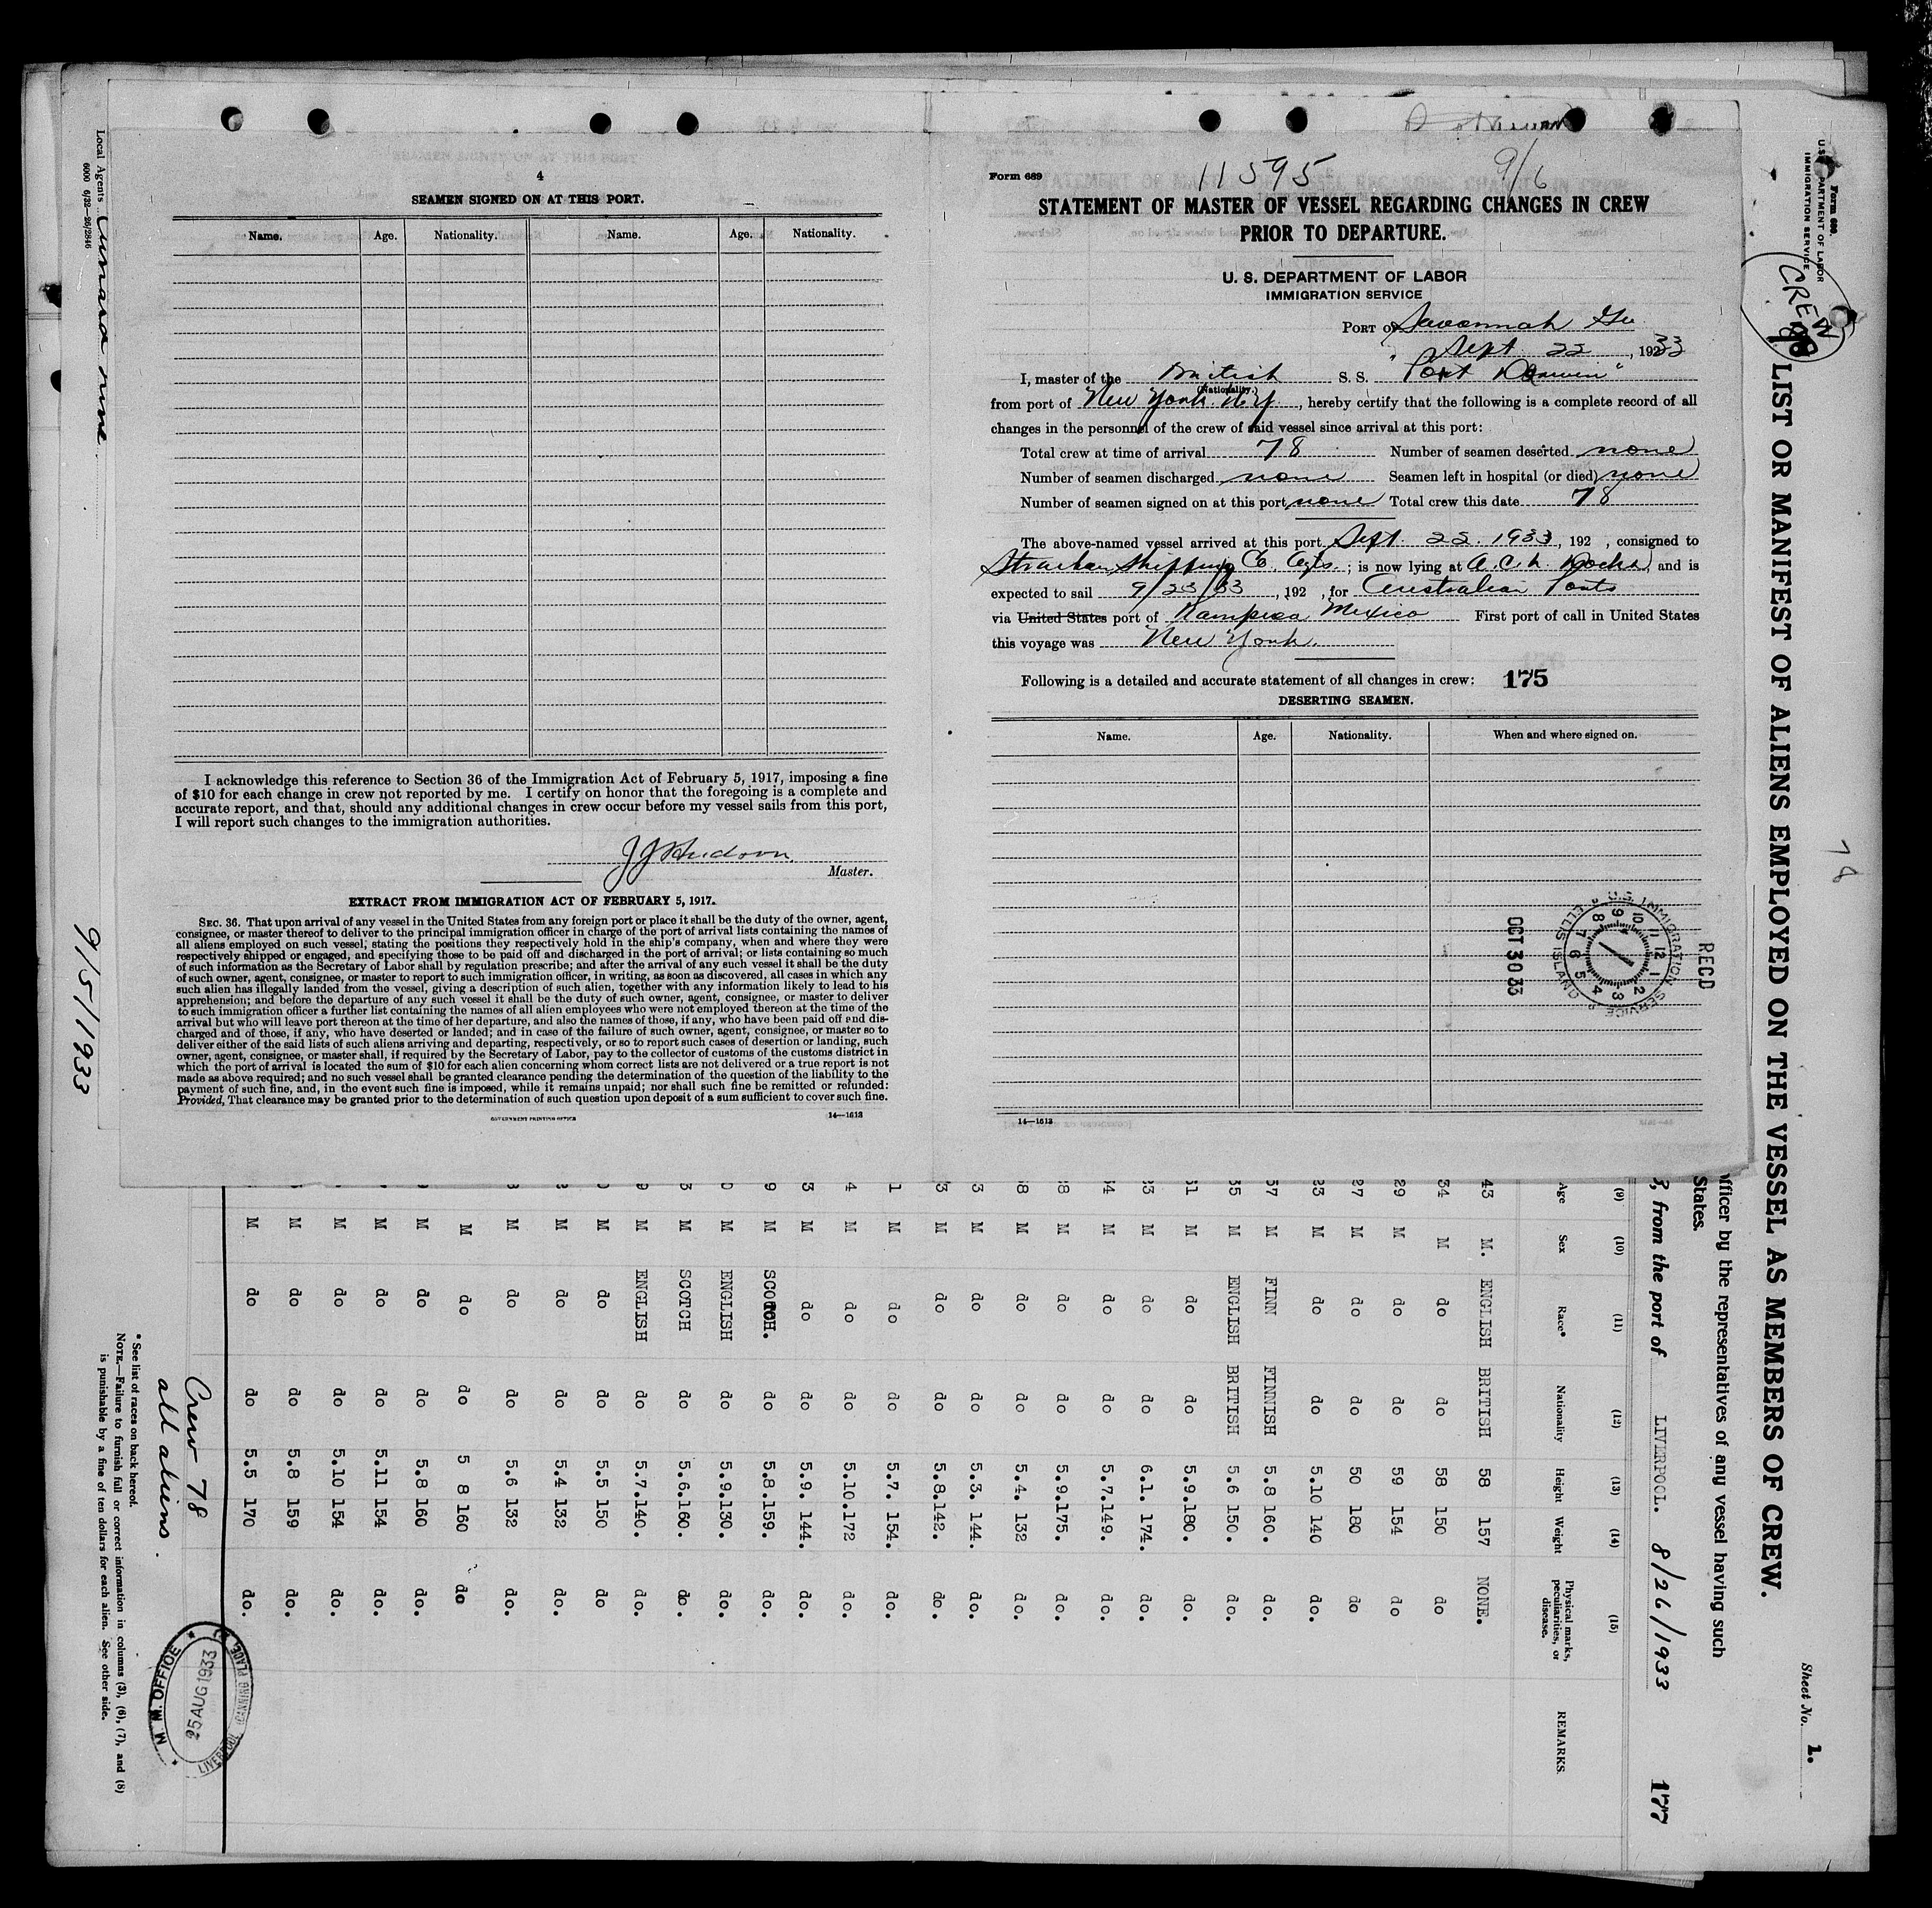 4
SEAMEN SIGNED ON AT THIS PORT.
Name. Age. Nationality. Name. Age. Nationality.
I acknowledge this reference to Section 36 of the Immigration Act of February 5, 1917, imposing a fine
of $10 for each change in crew not reported by me. I certify on honor that the foregoing is a complete and
accurate report, and that, should any additional changes in crew occur before my vessel sails from this port,
I will report such changes to the immigration authorities.
Master.
EXTRACT FROM IMMIGRATION ACT OF FEBRUARY 5, 1917.
SEC. 36. That upon arrival of any vessel in the United States from any foreign port or place it shall be the duty of the owner, agent,
consignee, or master thereof to deliver to the principal immigration officer in charge of the port of arrival lists containing the names of
all aliens employed on such vessel, stating the positions they respectively hold in the ship's company, when and where they were
respectively shipped or engaged, and specifying those to be paid off and discharged in the port of arrival; or lists containing so much
of such information as the Secretary of Labor shall by regulation prescribe; and after the arrival of any such vessel it shall be the duty
of such owner, agent, consignee, or master to report to such immigration officer, in writing, as soon as discovered, all cases in which any
such alien has illegally landed from the vessel, giving a description of such alien, together with any information likely to lead to his
apprehension; and before the departure of any such vessel it shall be the duty of such owner, agent, consignee, or master to deliver
to such immigration officer a further list containing the names of all alien employees who were not employed thereon at the time of the
arrival but who will leave port thereon at the time of her departure, and also the names of those, if any, who have been paid off and dis-
charged and of those, if any, who have deserted or landed; and in case of the failure of such owner, agent, consignee, or master so to
deliver either of the said lists of such aliens arriving and departing, respectively, or so to report such cases of desertion or landing, such
owner, agent, consignee, or master shall, if required by the Secretary of Labor, pay to the collector of customs of the customs district in
which the port of arrival is located the sum of $10 for each alien concerning whom correct lists are not delivered or a true report is not
made as above required; and no such vessel shall be granted clearance pending the determination of the question of the liability to the
payment of such fine, and, in the event such fine is imposed, while it remains unpaid; nor shall such fine be remitted or refunded:
Provided, That clearance may be granted prior to the determination of such question upon deposit of a sum sufficient to cover such fine.
GOVERNMENT PRINTING OFFICE 14—1613
11595 9/6
Form 689
STATEMENT OF MASTER OF VESSEL REGARDING CHANGES IN CREW
PRIOR TO DEPARTURE.
U. S. DEPARTMENT OF LABOR
IMMIGRATION SERVICE
PORT OF Savannah Ga
Sept 22, 1933
I, master of the British S. S. "Port Darwin"
(Nationality.)
from port of New York. N.Y., hereby certify that the following is a complete record of all
changes in the personnel of the crew of said vessel since arrival at this port:
Total crew at time of arrival 78 Number of seamen deserted none
Number of seamen discharged none Seamen left in hospital (or died) none
Number of seamen signed on at this port none Total crew this date 78
The above-named vessel arrived at this port Sept. 22. 1933, 192 , consigned to
Strachan Shipping Co. Agts.; is now lying at A.C.L. Docks, and is
expected to sail 9/23/33, 192 , for Australian Ports
via United States port of Tampico Mexico First port of call in United States
this voyage was New York.
Following is a detailed and accurate statement of all changes in crew: 175
DESERTING SEAMEN.
Name. Age. Nationality. When and where signed on.
RECD
U.S. IMMIGRATION SERVICE ELLIS ISLAND
OCT 30 33
14—1613
Local Agents Cunard Line
6000 6/32—26/2846
9/5/1933
Form 680.
U.S. DEPARTMENT OF LABOR
IMMIGRATION SERVICE
CREW
78
78
Sheet No. 1.
LIST OR MANIFEST OF ALIENS EMPLOYED ON THE VESSEL AS MEMBERS OF CREW.
officer by the representatives of any vessel having such
States.
3, from the port of LIVERPOOL. 8/26/1933 177
(9) (10) (11) (12) (13) (14) (15)
Age Sex Race* Nationality Height Weight Physical marks, peculiarities, or disease. REMARKS.
43 M. ENGLISH BRITISH 58 157 NONE.
34 M do do 58 150 do
29 M do do 59 154 do
27 M do do 50 180 do
23 M do do 5.10 140 do.
57 M FINN FINNISH 5.8 160. do.
35 M ENGLISH BRITISH 5.6 150. do.
51 M do do 5.9. 180. do.
33 M do do 6.1. 174. do.
34 M do do 5.7. 149. do.
38 M do do 5.9. 175. do.
38 M do do 5.4. 132 do.
3 M do do 5.3. 144. do.
3 M do do 5.8. 142. do.
1 M do do 5.7. 154. do.
4 M do do 5.10. 172 do.
3 M do do 5.9. 144. do.
9 M SCOTCH. do 5.8. 159. do.
0 M ENGLISH do 5.9. 130. do.
3 M SCOTCH do 5.6. 160. do.
9 M ENGLISH do 5.7. 140. do.
0 M do do 5.5 150 do
2 M do do 5.4 132 do.
3 M do do 5.6 132 do.
M do do 5 8 160 do
M do do 5.8 160 do.
M do do 5.11 154 do.
M do do 5.10 154 do.
M do do 5.8 159 do.
M do do 5.5 170 do.
Crew 78
all aliens.
M. M. OFFICE
25 AUG 1933
LIVERPOOL CANNING PLACE
* See list of races on back hereof.
NOTE.—Failure to furnish full or correct information in columns (3), (6), (7), and (8)
is punishable by a fine of ten dollars for each alien. See other side.